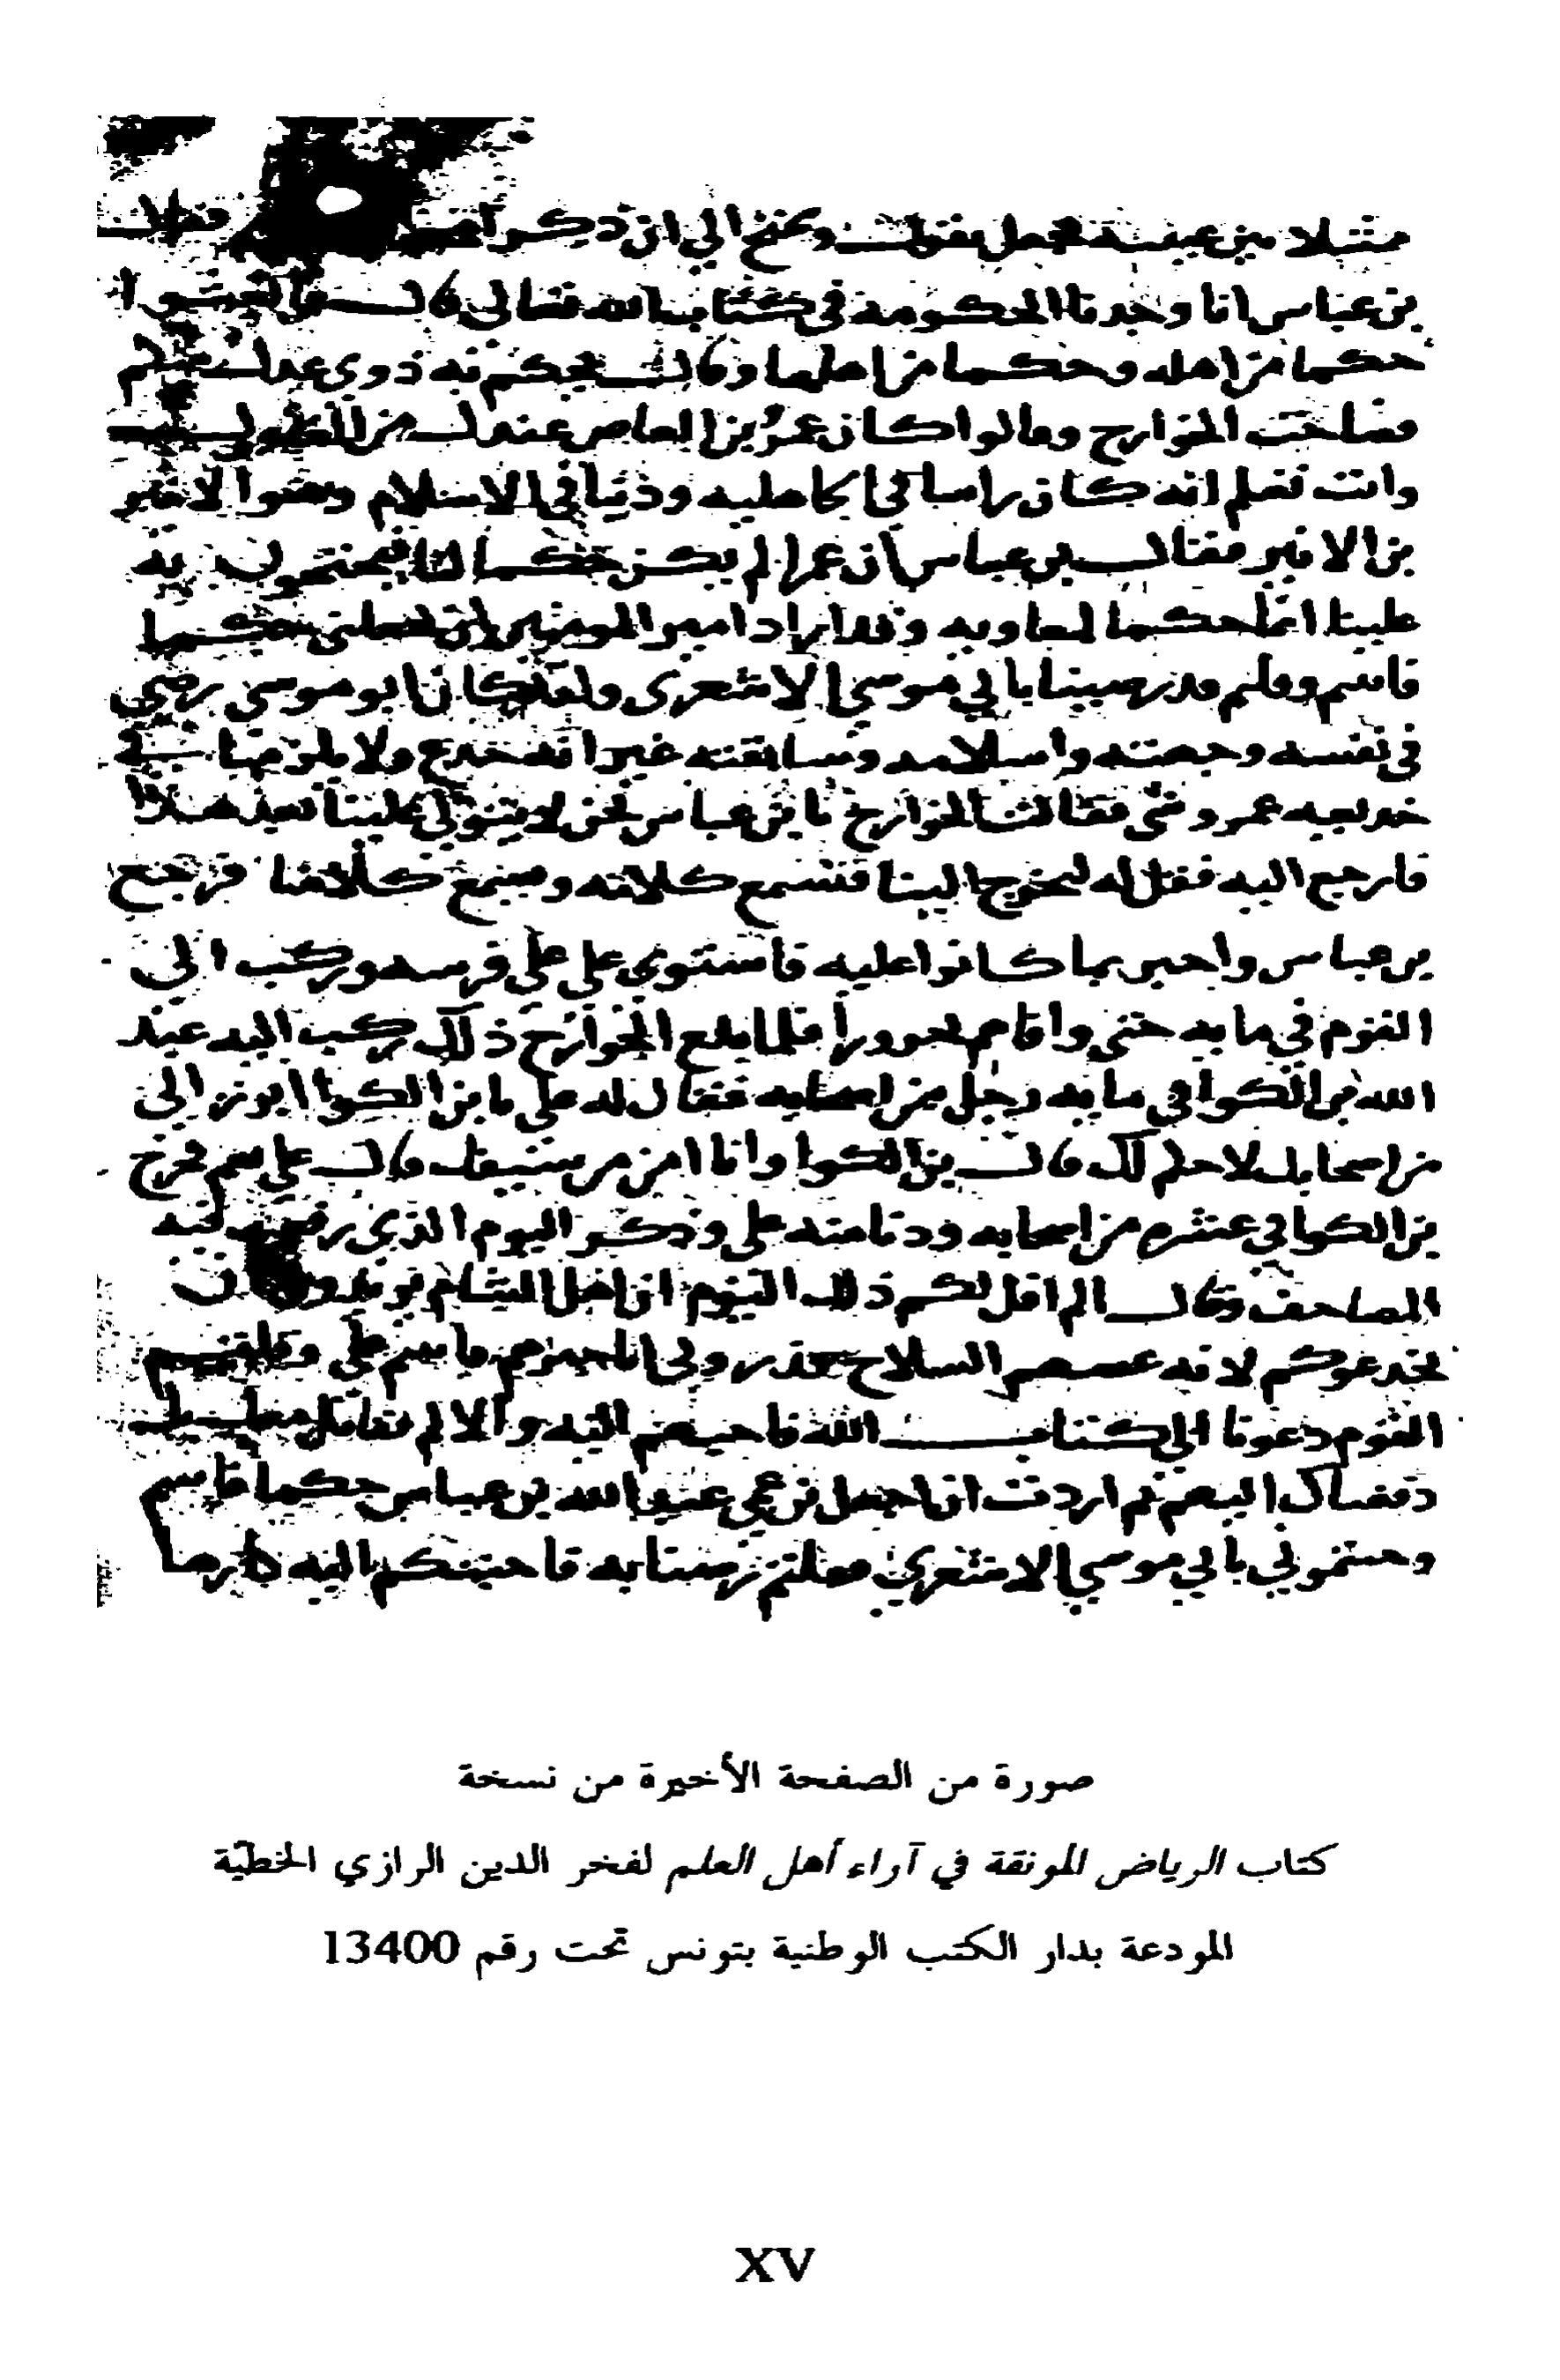 مثلا من عينه فجعل
بن عباس انا وجدنا الحكومة في كتاب الله تعالى قال فابعثوا
حكما من اهله وحكما من اهلها وقال يحكم به ذوي عدل منكم
فصاحت الخوارج وقالوا اكان عمرو بن العاص عندك من
وانت تعلم انه كان راسا في الجاهلية وذنبا في الاسلام وهو الابتر
بن الابتر فقال بن عباس ان عمرا لم يكن حكما لنا فيحتجون به
علينا انما حكما لمعاويه وقد اراد امير المومنين ان يجعلني حكما
فابيتم وقلتم قد رضينا بابي موسى الاشعري ولقد كان ابو موسى رضي
في نفسه وصحبته واسلامه وسابقته غير انه خدع ولا يلزمنا
خديعه عمرو فقالت الخوارج يا بن عباس نحن لا يتولى علينا بعد هذا
فارجع اليه فقل له ليخرج الينا فنسمع كلامه ويسمع كلامنا فرجع
بن عباس واخبره بما كانوا عليه فاستوى علي على فرسه وركب الى
القوم في مايه حتى وافاهم بحرورا فلما بلغ الخوارج ذلك ركب اليه عبد
الله بن الكوا في مايه رجل من اصحابه فقال له علي يا بن الكوا ابرز الي
من اصحابك لاكلمك قال بن الكوا وانا امن من سيفك قال علي نعم فخرج
بن الكوا في عشره من اصحابه ودنا منه علي وذكر اليوم الذي رفعت فيه
المصاحف وقال الم اقل لكم ذلك اليوم ان اهل الشام يريدون ان
يخدعوكم لانه عضهم السلاح فذروني اناجزهم فابيتم علي وقلتم
القوم دعونا الى كتاب الله فاجبهم اليه والا لم نقاتل معك
دفعناك اليهم ثم اردت ان اجعل بن عمي عبد الله بن عباس حكما فابيتم
وجيتموني بابي موسى الاشعري وقلتم رضينا به فاجبتكم اليه كارها
صورة من الصفحة الأخيرة من نسخة
كتاب الرياض المونقة في آراء أهل العلم لفخر الدين الرازي الخطيّة
المودعة بدار الكتب الوطنية بتونس تحت رقم 13400
XV